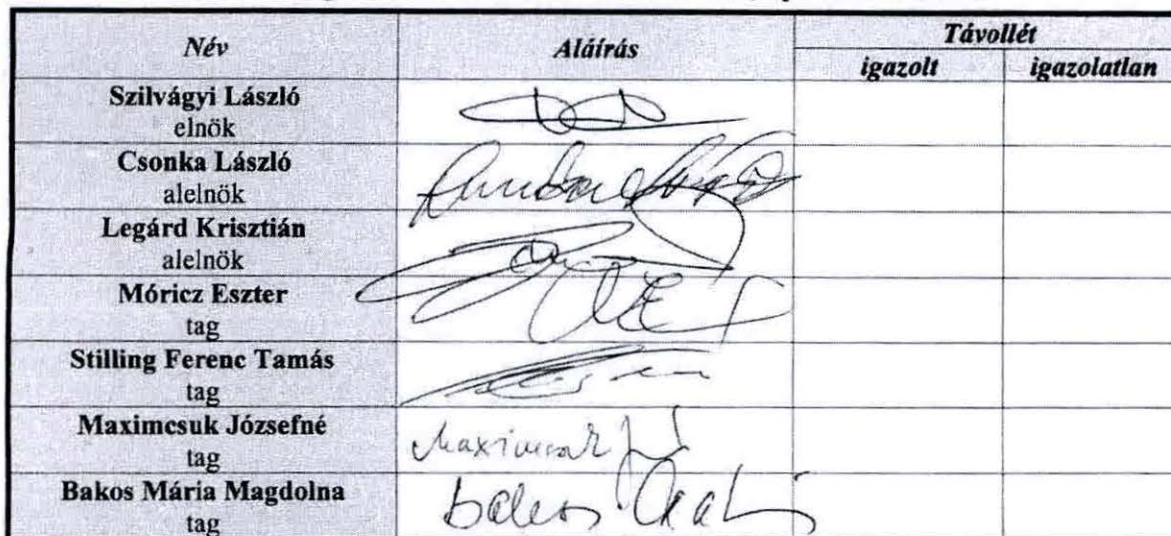 Név Aláírás Távollét
igazolt igazolatlan
Szilvágyi László
elnök
Csonka László
alelnök
Legárd Krisztián
alelnök
Móricz Eszter
tag
Stilling Ferenc Tamás
tag
Maximcsuk Józsefné
tag
Maximcsuk
Bakos Mária Magdolna
tag
Bakos